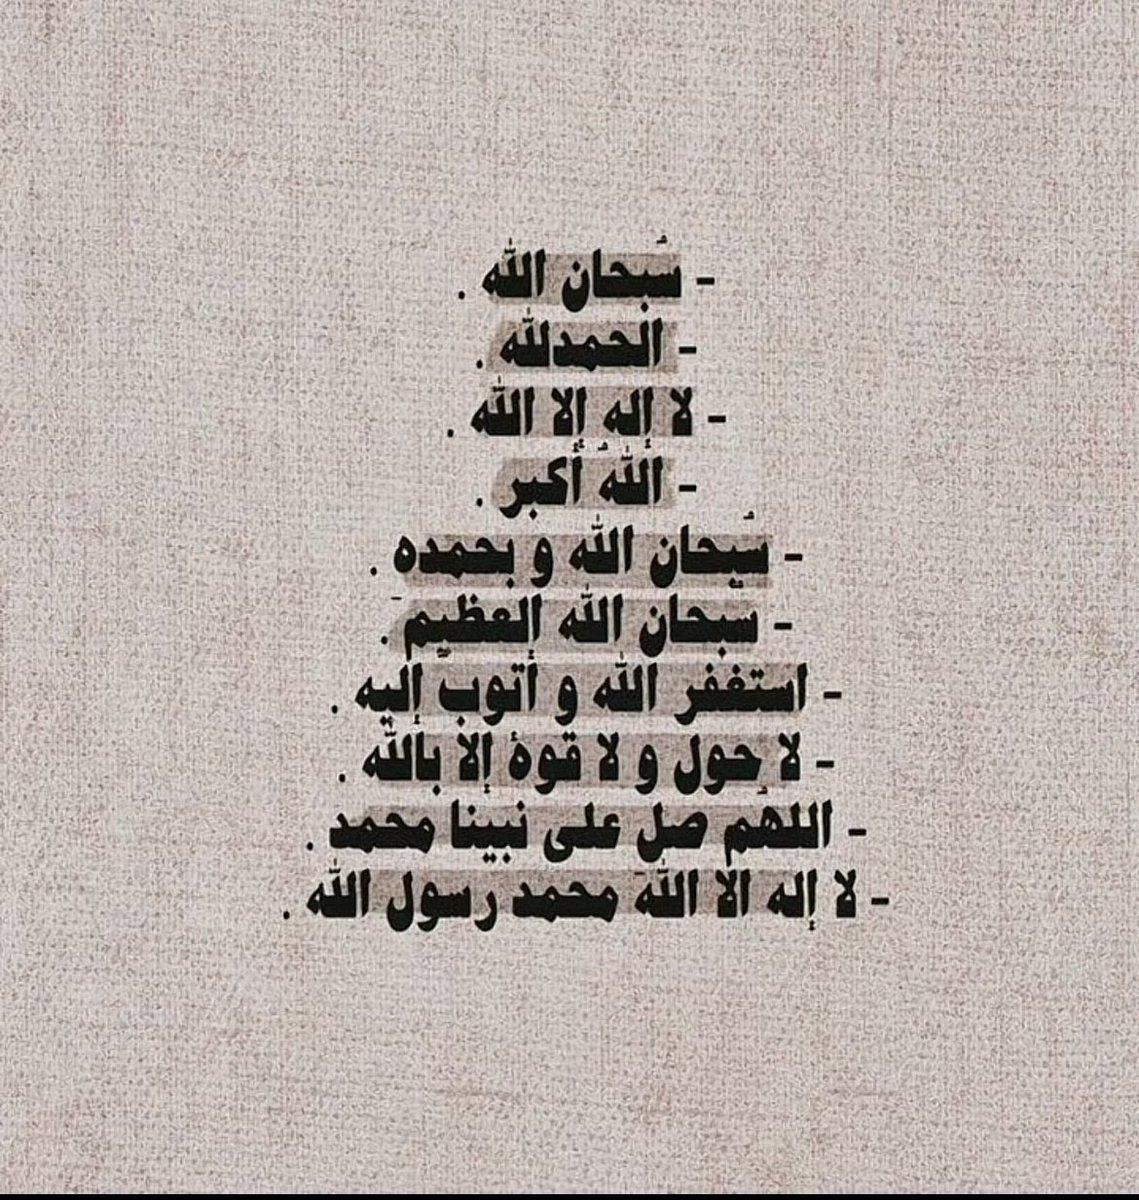 - سُبحان الله .
- الحمدلله .
- لا إله إلا الله .
- اللهُ أكبر .
- سُبحان الله و بحمده .
- سبحان الله العظيم .
- استغفر الله و أتوب إليه .
- لا حول و لا قوة إلا بالله .
- اللهُم صل على نبينا محمد .
- لا إله الا الله محمد رسول الله .